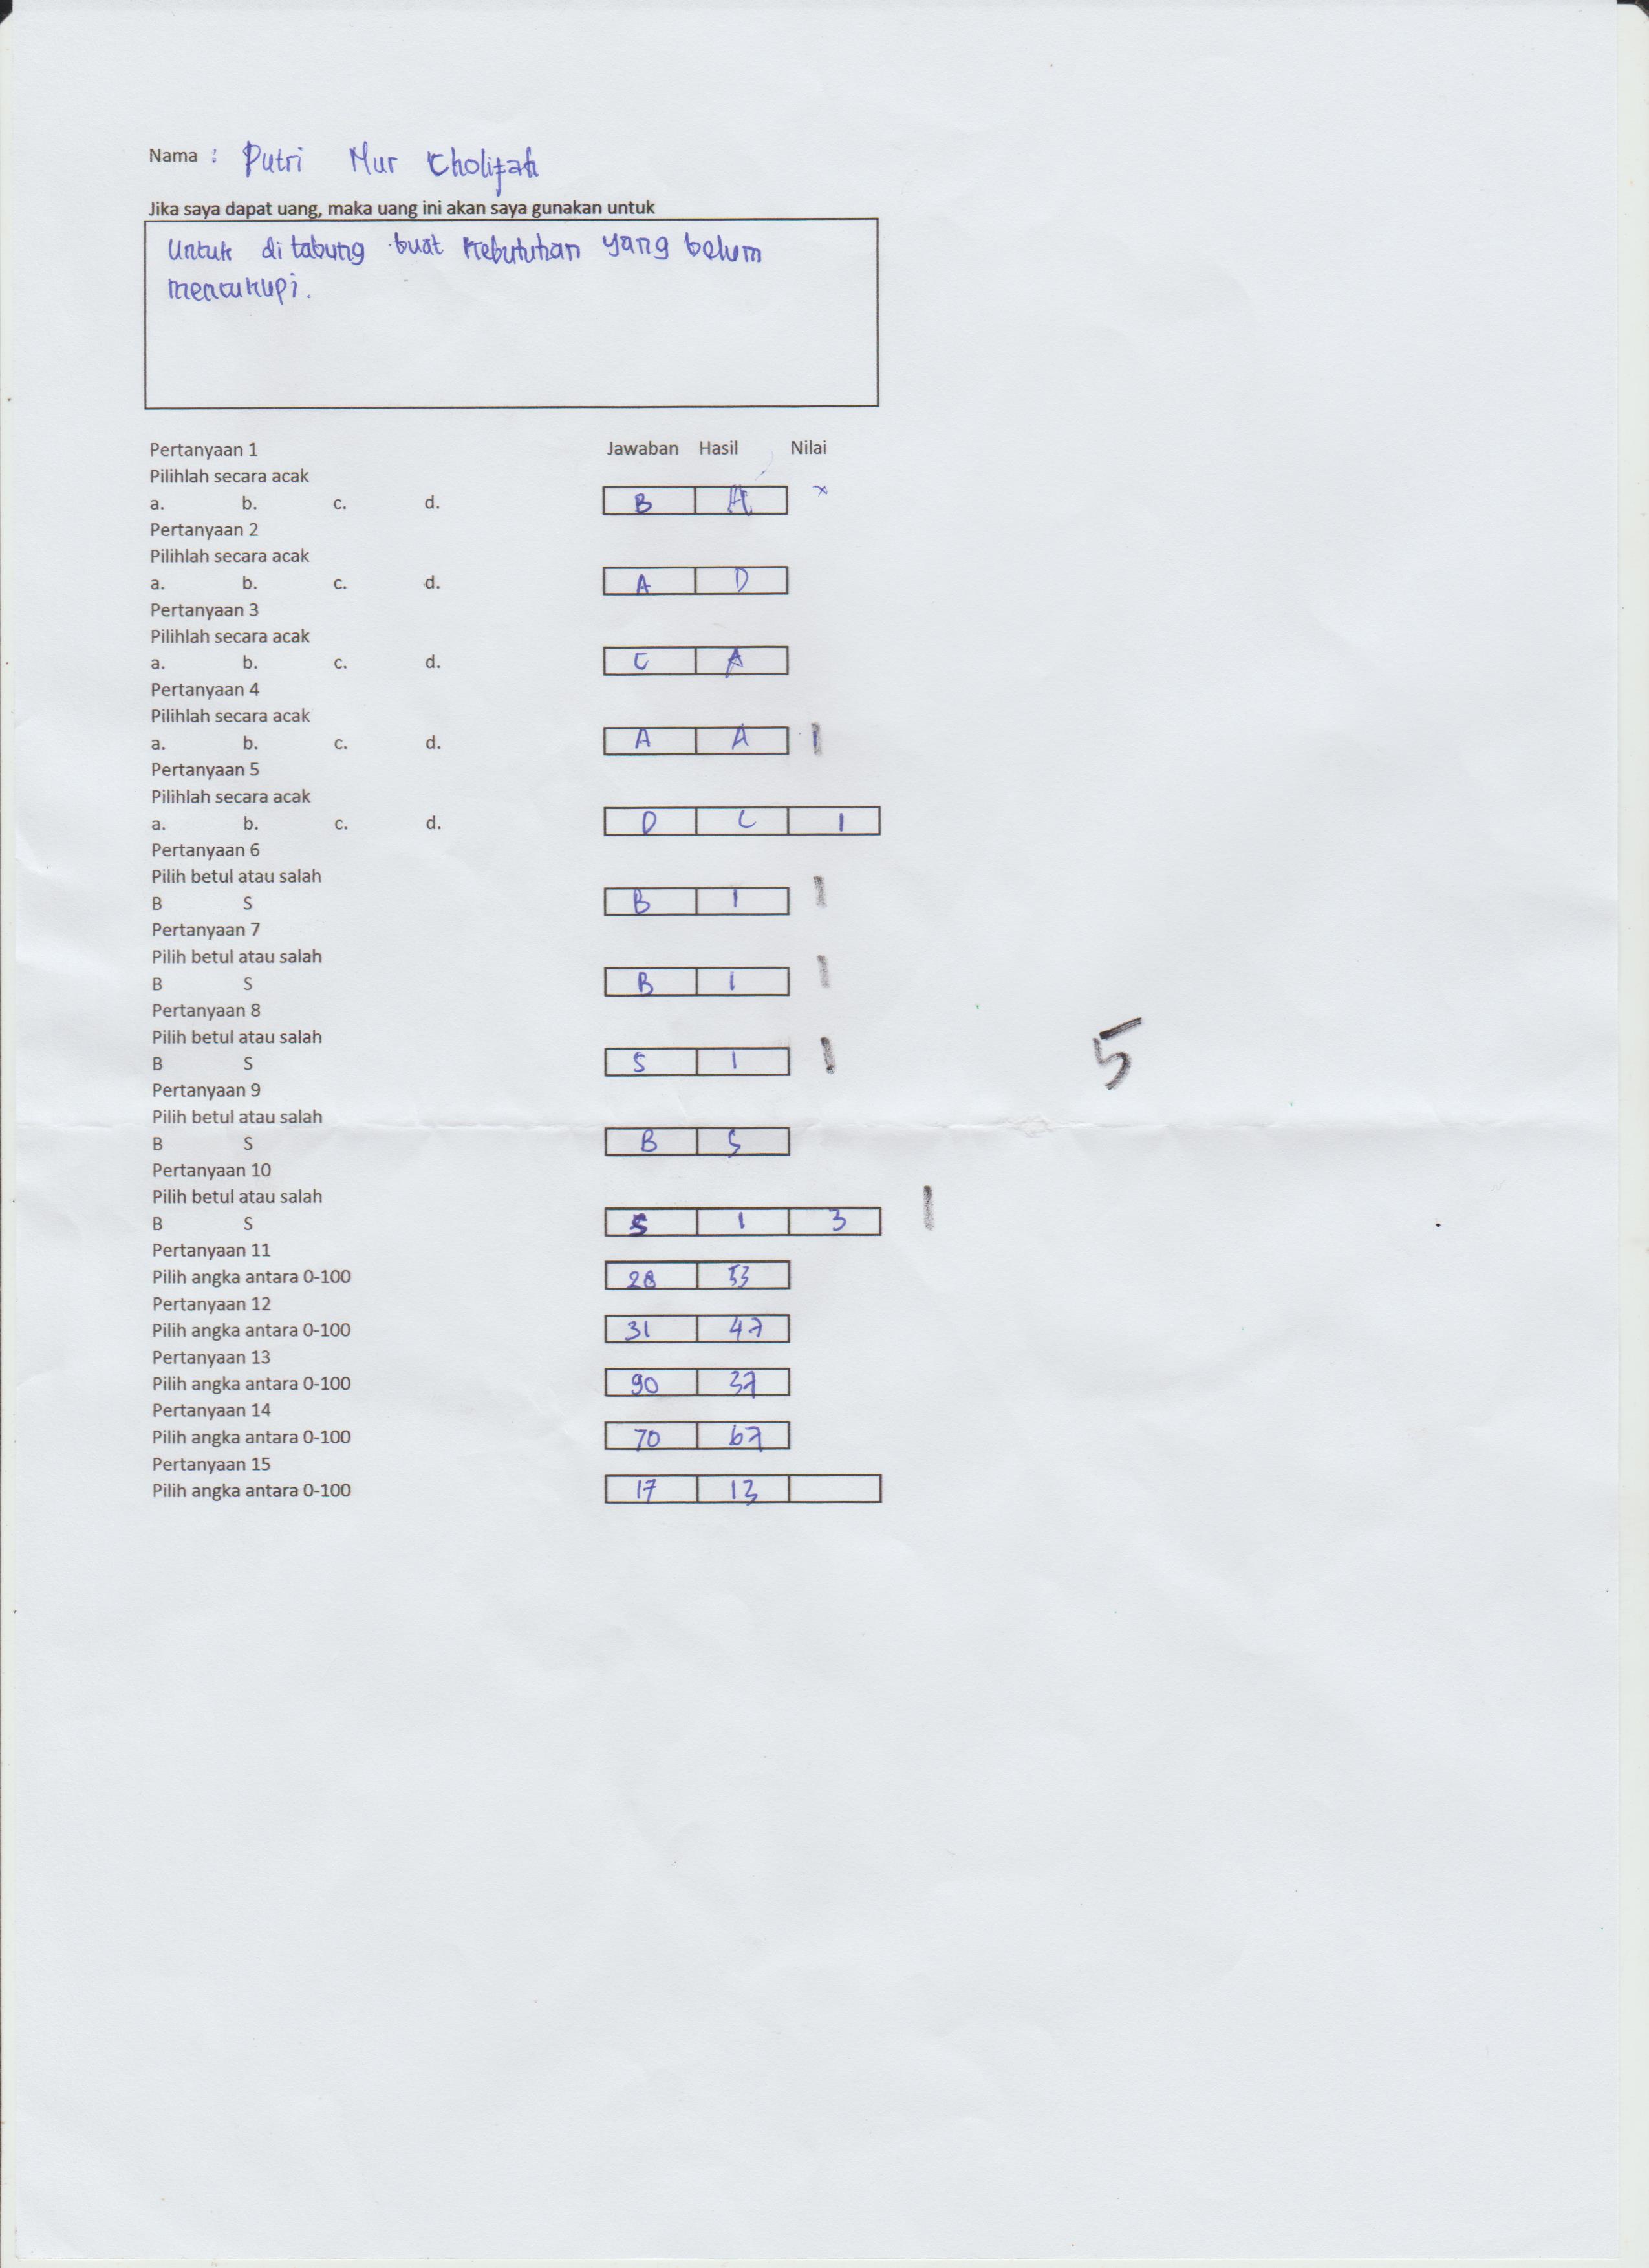 Nama : Putri Nur Cholifah
Jika saya dapat uang, maka uang ini akan saya gunakan untuk
Untuk di tabung buat kebutuhan yang belum
mencukupi.
Pertanyaan 1 Jawaban Hasil Nilai
Pilihlah secara acak
a. b. c. d. B A x
Pertanyaan 2
Pilihlah secara acak
a. b. c. d. A D
Pertanyaan 3
Pilihlah secara acak
a. b. c. d. C A
Pertanyaan 4
Pilihlah secara acak
a. b. c. d. A A 1
Pertanyaan 5
Pilihlah secara acak
a. b. c. d. D C 1
Pertanyaan 6
Pilih betul atau salah
B S B 1 1
Pertanyaan 7
Pilih betul atau salah
B S B 1 1
Pertanyaan 8
Pilih betul atau salah
B S S 1 1
5
Pertanyaan 9
Pilih betul atau salah
B S B S
Pertanyaan 10
Pilih betul atau salah
B S S 1 3 1
Pertanyaan 11
Pilih angka antara 0-100 28 53
Pertanyaan 12
Pilih angka antara 0-100 31 47
Pertanyaan 13
Pilih angka antara 0-100 90 37
Pertanyaan 14
Pilih angka antara 0-100 70 67
Pertanyaan 15
Pilih angka antara 0-100 17 13